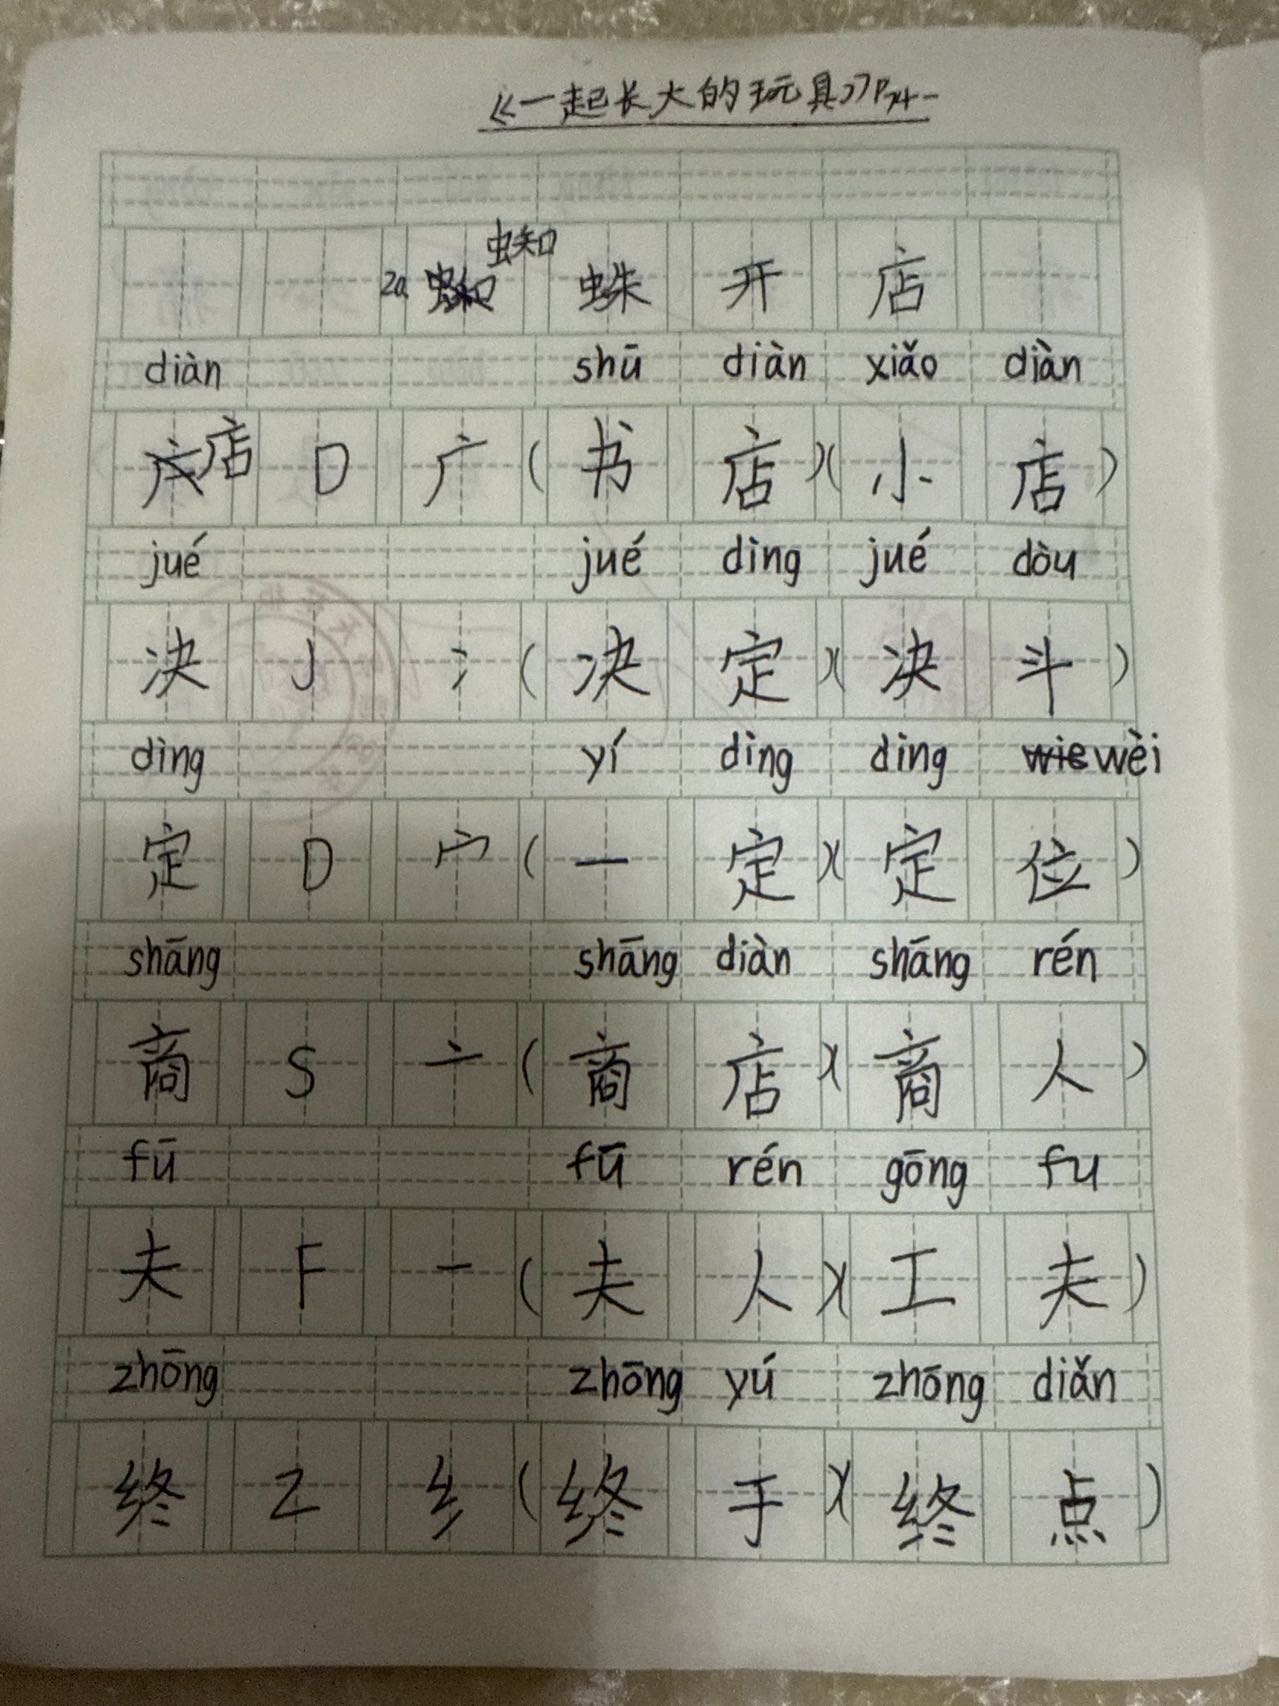 《一起长大的玩具》P74-
20 蜘蛛开店
diàn shū diàn xiǎo diàn
店 D 广 (书店)(小店)
jué jué dìng jué dòu
决 J 冫 (决定)(决斗)
dìng yí dìng dìng wèi
定 D 宀 (一定)(定位)
shāng shāng diàn shāng rén
商 S 亠 (商店)(商人)
fū fū rén gōng fu
夫 F 一 (夫人)(工夫)
zhōng zhōng yú zhōng diǎn
终 Z 纟 (终于)(终点)